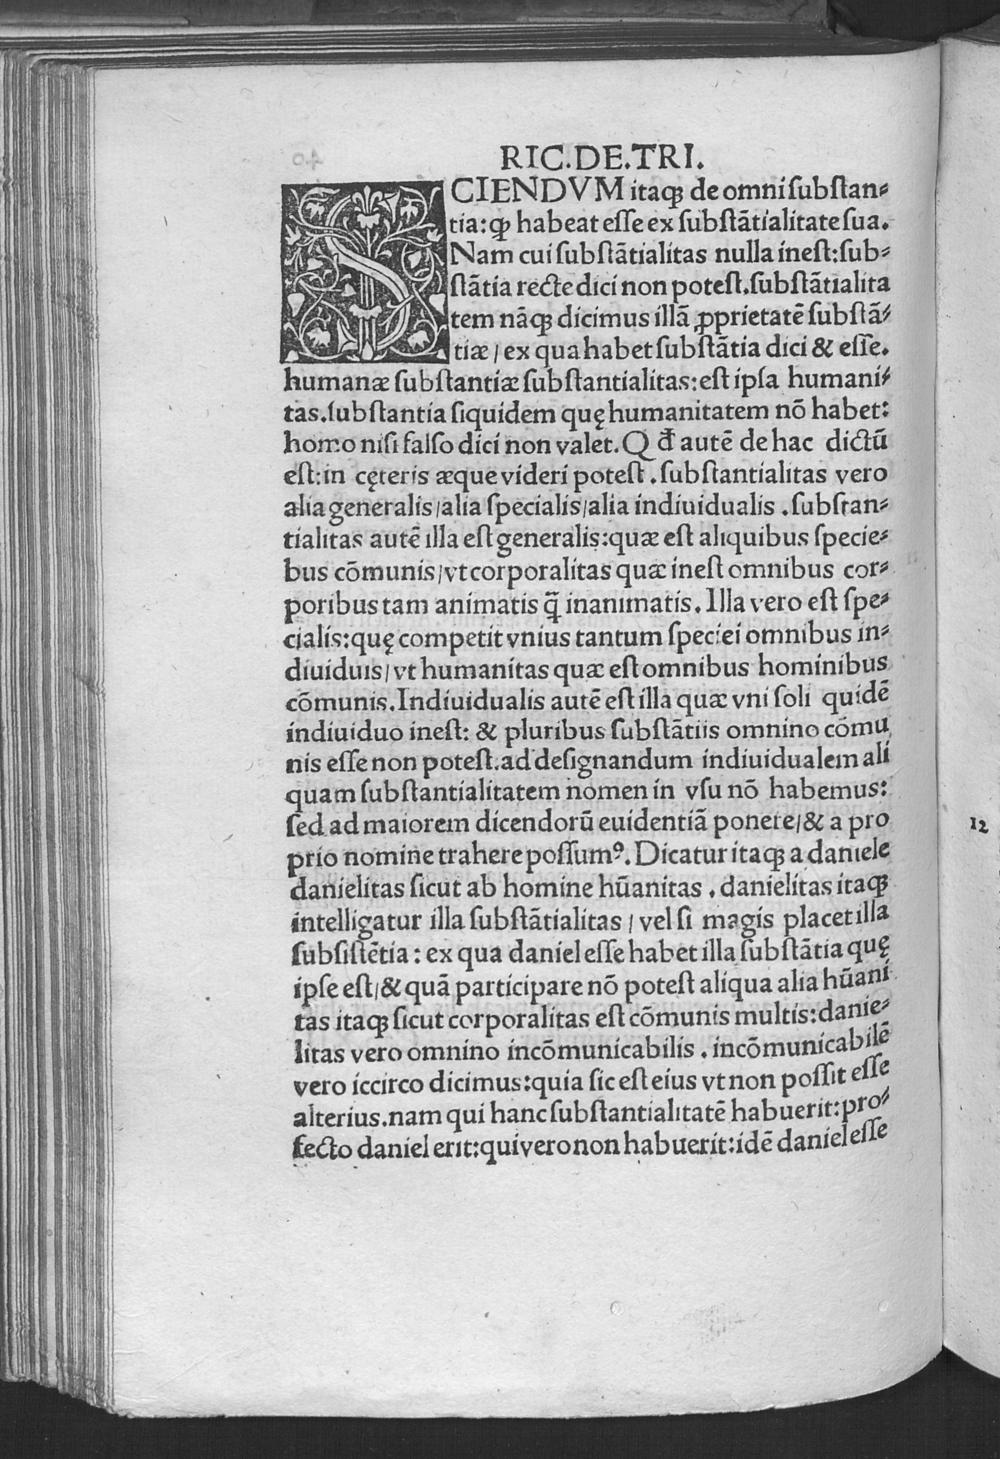 RIC.DE.TRI.
SCIENDVM itaqꝫ de omni ſubſtan⸗
tia:ꝙ habeat eſſe ex ſubſtãtialitate ſua.
Nam cui ſubſtãtialitas nulla ineſt:ſub⸗
ſtãtia recte dici non poteſt.ſubſtãtialita
tem nãqꝫ dicimus illã ꝓprietatẽ ſubſtã⸗
tiæ/ex qua habet ſubſtãtia dici & eſſe.
humanæ ſubſtantiæ ſubſtantialitas:eſt ipſa humani⸗
tas.ſubſtantia ſiquidem quę humanitatem nõ habet:
homo niſi falſo dici non valet.Qđ autẽ de hac dictũ
eſt:in cęteris æque videri poteſt.ſubſtantialitas vero
alia generalis/alia ſpecialis/alia indiuidualis.ſubſtan⸗
tialitas autẽ illa eſt generalis:quæ eſt aliquibus ſpecie⸗
bus cõmunis/vt corporalitas quæ ineſt omnibus cor⸗
poribus tam animatis q̃ inanimatis.Illa vero eſt ſpe⸗
cialis:quę competit vnius tantum ſpeciei omnibus in⸗
diuiduis/vt humanitas quæ eſt omnibus hominibus
cõmunis.Indiuidualis autẽ eſt illa quæ vni ſoli quidẽ
indiuiduo ineſt: & pluribus ſubſtãtiis omnino cõmu
nis eſſe non poteſt.ad deſignandum indiuidualem ali
quam ſubſtantialitatem nomen in vſu nõ habemus:
ſed ad maiorem dicendorũ euidentiã ponere/& a pro
prio nomine trahere poſſumꝰ.Dicatur itaqꝫ a daniele
danielitas ſicut ab homine hũanitas.danielitas itaqꝫ
intelligatur illa ſubſtãtialitas/vel ſi magis placet illa
ſubſiſtẽtia:ex qua daniel eſſe habet illa ſubſtãtia quę
ipſe eſt/& quã participare nõ poteſt aliqua alia hũani
tas itaqꝫ ſicut corporalitas eſt cõmunis multis:danie⸗
litas vero omnino incõmunicabilis.incõmunicabilẽ
vero iccirco dicimus:quia ſic eſt eius vt non poſſit eſſe
alterius.nam qui hanc ſubſtantialitatẽ habuerit:pro⸗
fecto daniel erit:qui vero non habuerit:idẽ daniel eſſe
12